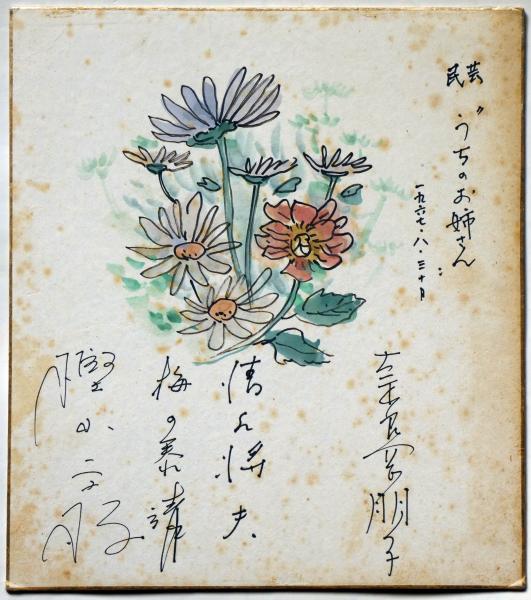 民芸
"うちのお姉さん"
一九六七・八・三十日
奈良岡朋子
清水将夫
梅の泰靖
樫山文枝